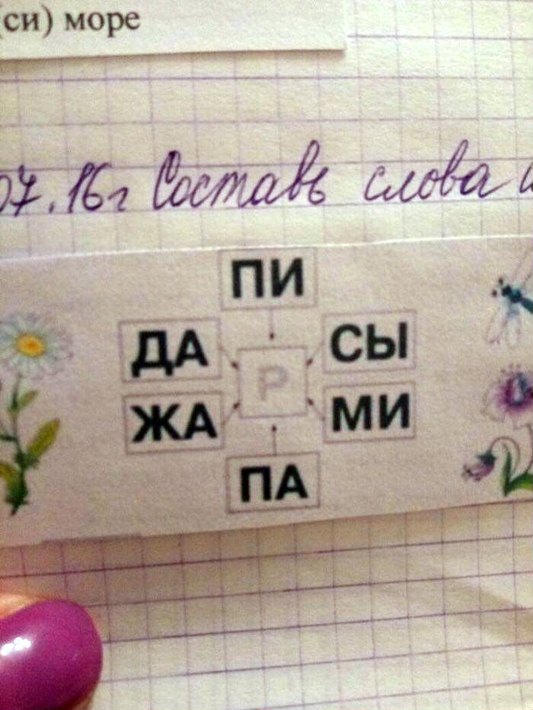 (си) море
07.16г Составь слова и
ПИ
ДА
СЫ
Р
ЖА
МИ
ПА